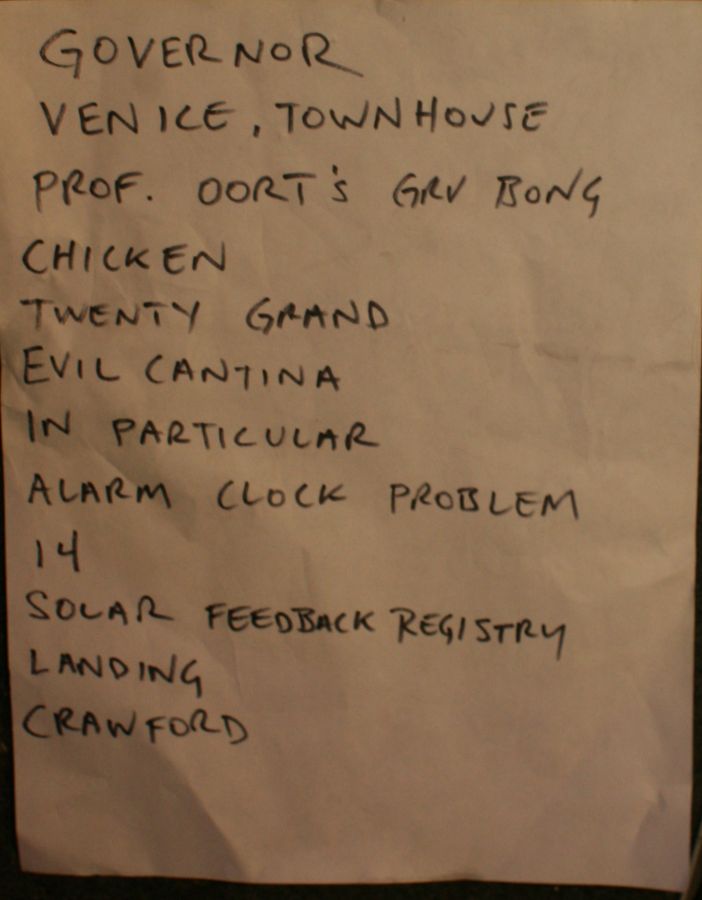 GOVERNOR
VENICE, TOWNHOUSE
PROF. OORT'S GRV BONG
CHICKEN
TWENTY GRAND
EVIL CANTINA
IN PARTICULAR
ALARM CLOCK PROBLEM
14
SOLAR FEEDBACK REGISTRY
LANDING
CRAWFORD